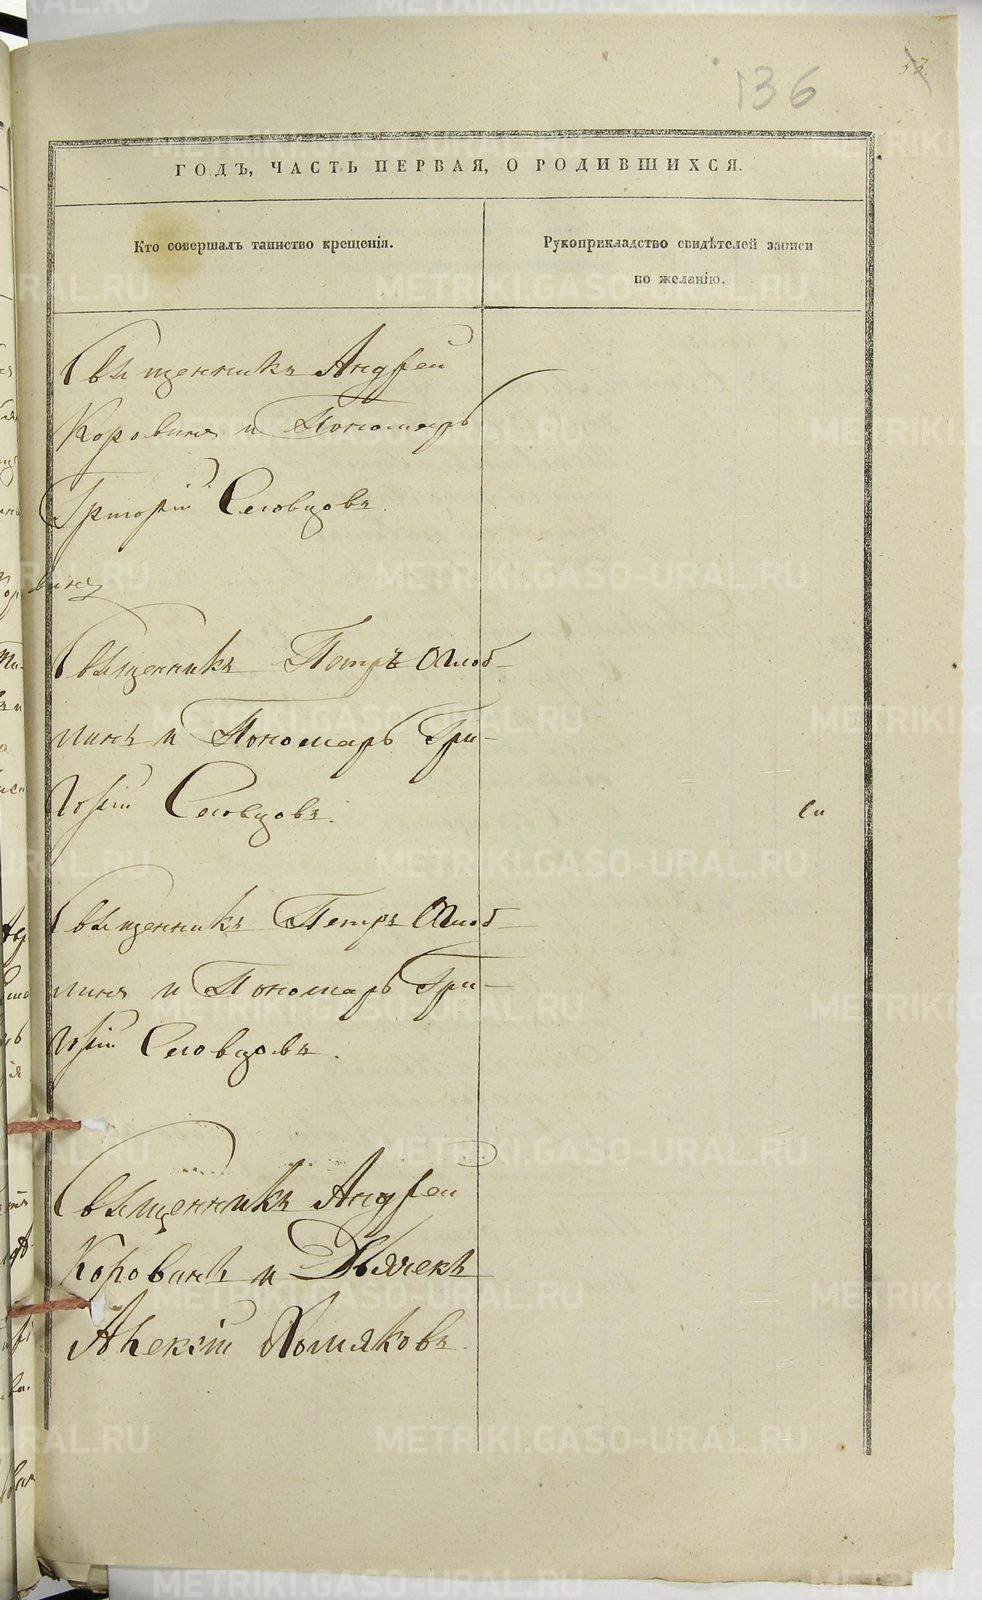 136
ГОДЪ, ЧАСТЬ ПЕРВАЯ, О РОДИВШИХСЯ.
Кто совершалъ таинство крещенія.
Рукоприкладство свидѣтелей записи
по желанію.
Священникъ Андрей
Коровинъ и Пономарь
Григорій Словцовъ.
винъ
Священникъ Петръ Оглоб-
линъ и Пономарь Гри-
горій Словцовъ.
Священникъ Петръ Оглоб-
линъ и Пономарь Гри-
горій Словцовъ.
Священникъ Андрей
Коровинъ и Дьячекъ
Алексій Хомяковъ.
METRIKI.GASO-URAL.RU